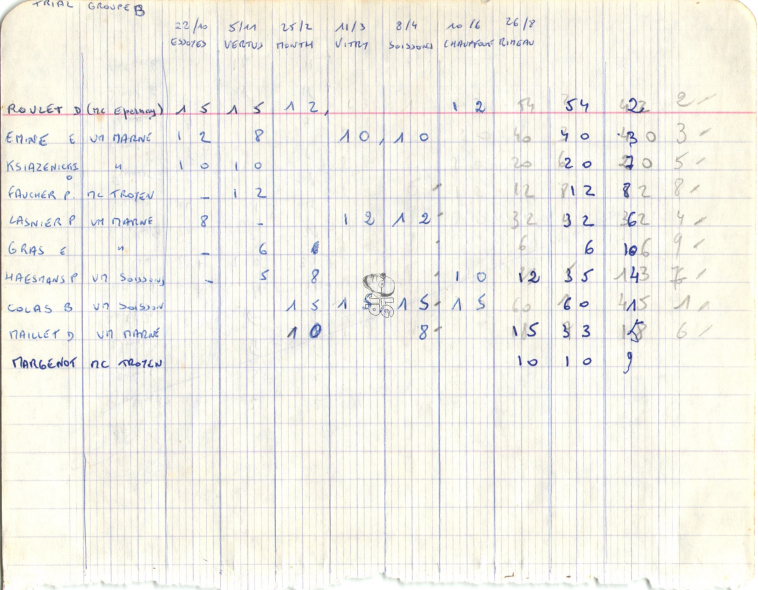 TRIAL GROUPE B
22/10 5/11 25/2 11/3 8/4 10/6 26/8
ESSOYES VERTUS MONTH VITRY SOISSONS RIMEAU
ROULET D (MC Epernay) 15 15 12, 12 54 54 2 2
EMINE E UM MARNE 12 8 10, 10 40 40 3 3
KSIAZENICKI " 10 10 20 20 7 5
FAUCHER P. MC TROYEN _ 12 12 12 8 8
LASNIER P UM MARNE 8 - 12 12 32 32 6 4
GRAS E " _ 6 6 6 6 10 9
HAESMANS P UM SOISSONS - 5 8 10 12 35 4 7
COLAS B UM SOISSON 15 15 15 15 60 60 1 1
MAILLET D UM MARNE 10 8 15 33 5 6
MARGENOT MC TROYEN 10 10 9